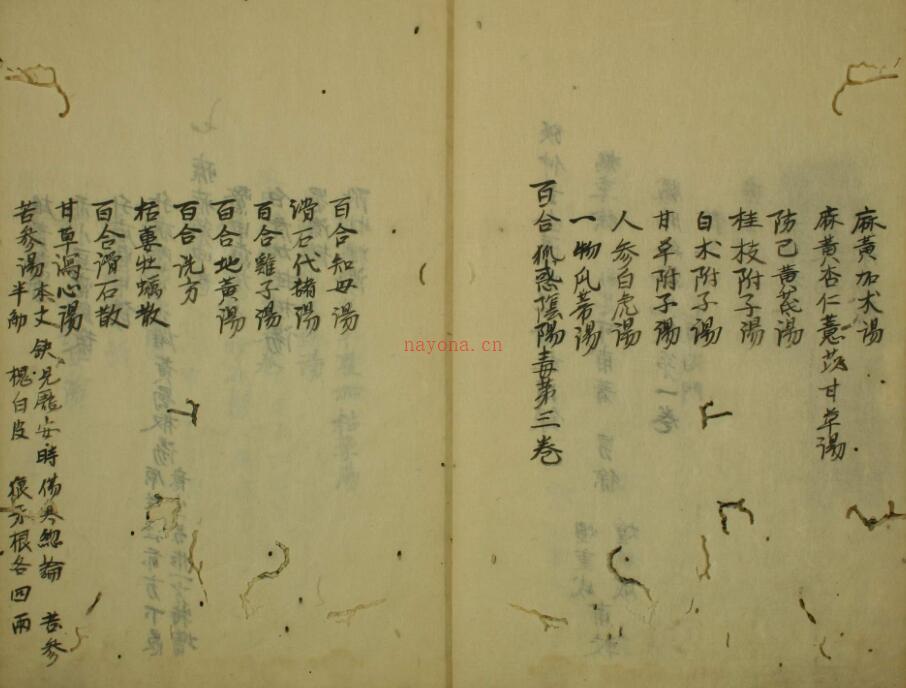 麻黄加术湯
麻黄杏仁薏苡甘草湯
防己黄芪湯
桂枝附子湯
白术附子湯
甘草附子湯
人参白虎湯
一物瓜蒂湯
百合狐惑陰陽毒第三卷
百合知母湯
滑石代赭湯
百合雞子湯
百合地黄湯
百合洗方
栝蔞牡蠣散
百合滑石散
甘草瀉心湯
苦参湯本文缺見龐安時傷寒総論 苦参
半觔 槐白皮 狼牙根各四兩
nayona.cn